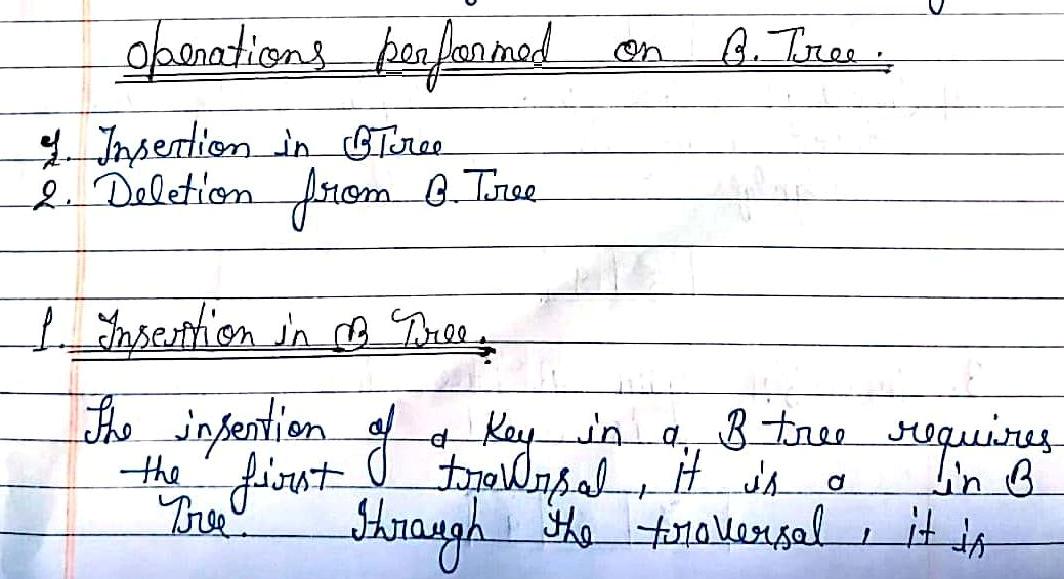 operations performed on B. Tree.
1. Insertion in BTree
2. Deletion from B. Tree
1. Insertion in B Tree.
The insertion of a Key in a B tree requires
the first traversal, it is a in B
Tree. Through the traversal, it is